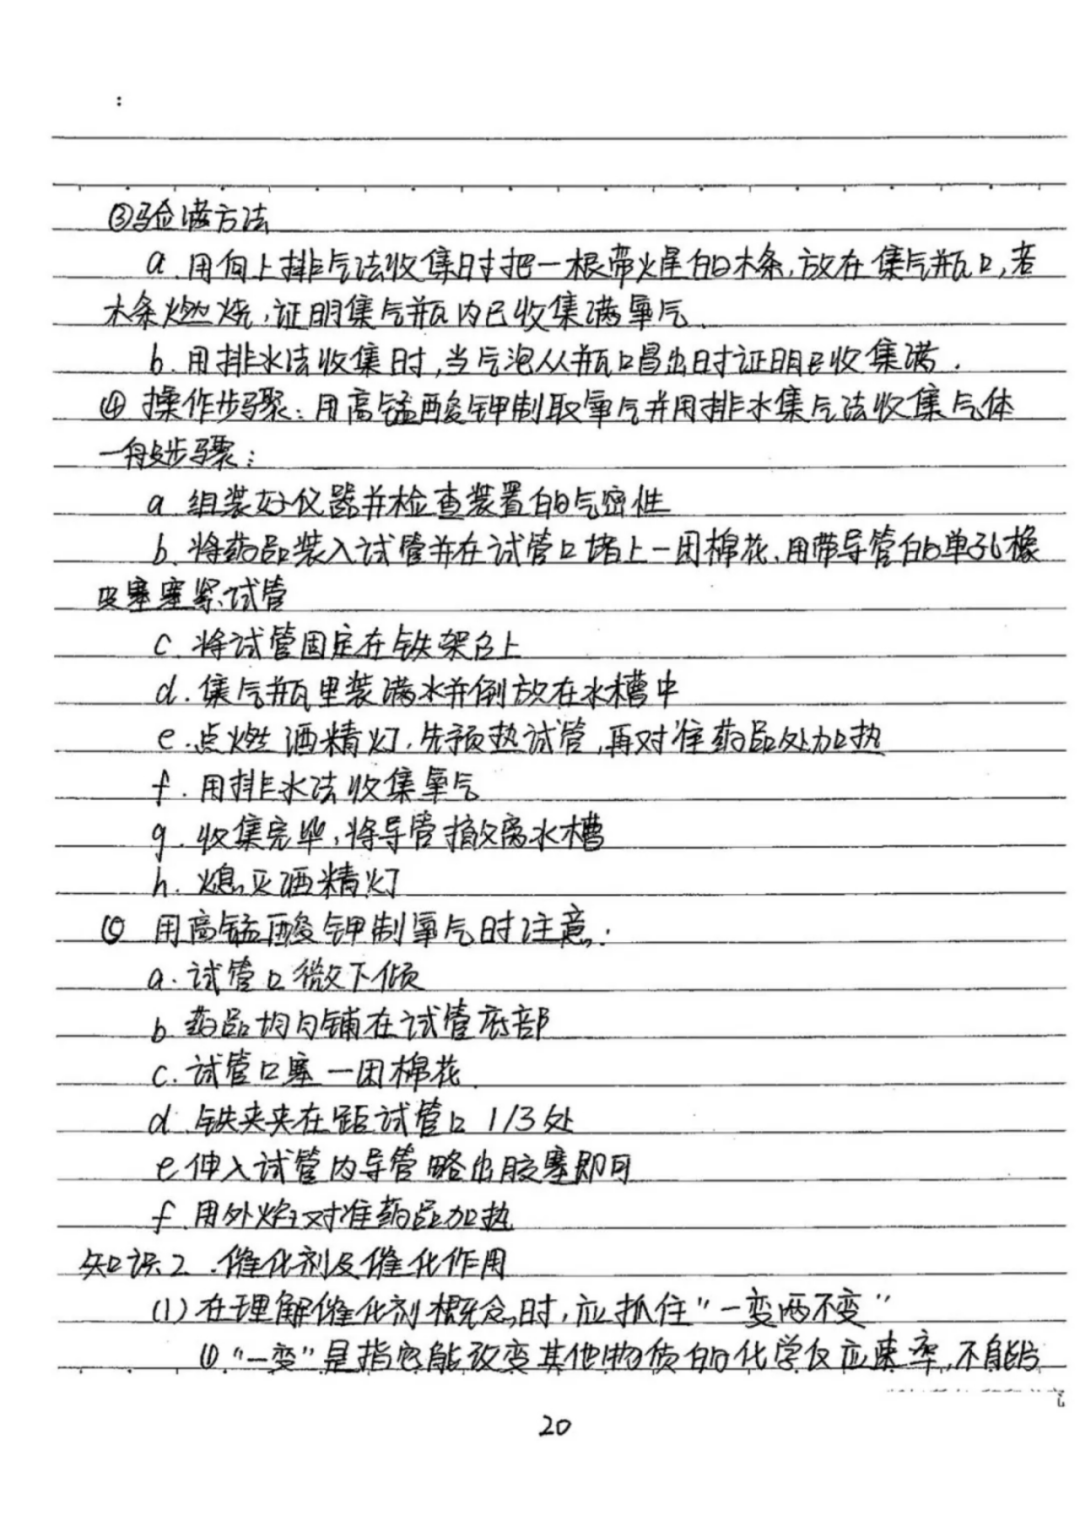 :
③验满方法
a.用向上排气法收集时把一根带火星的木条,放在集气瓶口,若
木条燃烧,证明集气瓶内已收集满氧气.
b.用排水法收集时,当气泡从瓶口冒出时证明已收集满.
④操作步骤:用高锰酸钾制取氧气并用排水集气法收集气体
一般步骤:
a.组装好仪器并检查装置的气密性
b.将药品装入试管并在试管口堵上一团棉花,用带导管的单孔橡
皮塞塞紧试管
c.将试管固定在铁架台上
d.集气瓶里装满水并倒放在水槽中
e.点燃酒精灯,先预热试管,再对准药品处加热
f.用排水法收集氧气
g.收集完毕,将导管撤离水槽
h.熄灭酒精灯
⑤用高锰酸钾制氧气时注意:
a.试管口微下倾
b.药品均匀铺在试管底部
c.试管口塞一团棉花.
d.铁夹夹在距试管口1/3处
e伸入试管内导管略出胶塞即可
f.用外焰对准药品加热
知识2.催化剂及催化作用
(1)在理解催化剂概念时,应抓住"一变两不变"
①"一变"是指它能改变其他物质的化学反应速率,不能
20